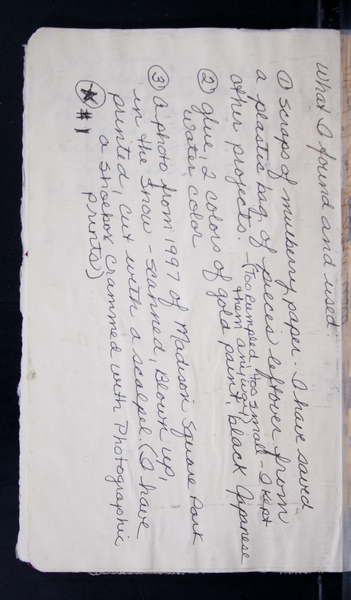 What I found and used:
① Scraps of mulberry paper. I have saved
a plastic bag of pieces leftover from
other projects. - (Too small - I kept
them anyway!)
② glue, 2 colors of gold paint, black Japanese
water color
③ a photo from 1997 of Madison Square Park
in the snow - scanned, blown up,
printed, cut with a scalpel. (I have
a shoebox crammed with Photographic
prints)
* #1